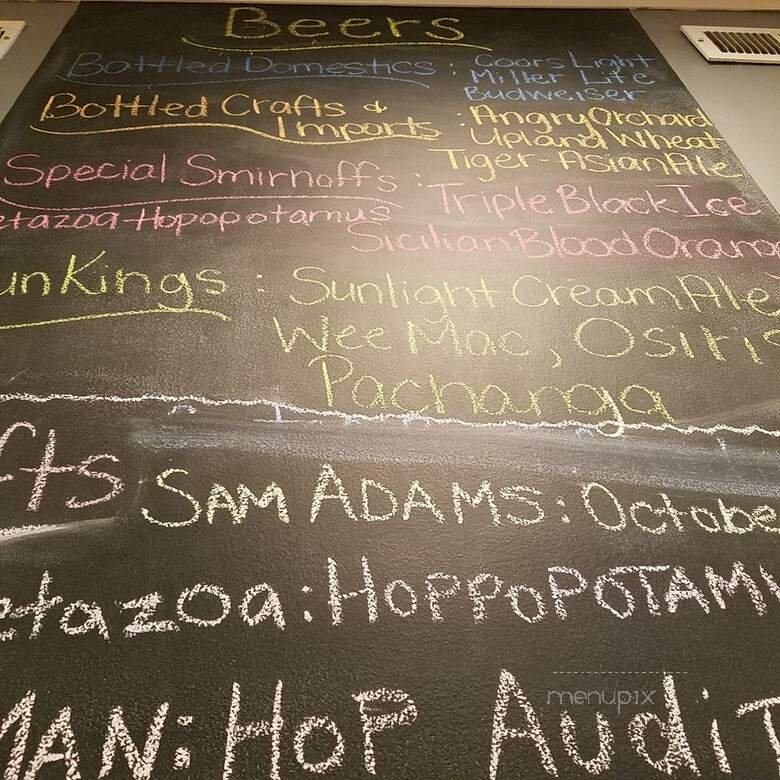 Beers
Bottled Domestics : Coors Light
Miller Life
Budweiser
Bottled Crafts &
Imports : Angry Orchard
Upland Wheat
Tiger-Asian Ale
Special Smirnoffs : Triple Black Ice
etazoa-Hopopotamus
Sicilian Blood Orang
unKings : Sunlight Cream Ale
Wee Mac, Osiris
Pachanga
fts
SAM ADAMS: Octobe
etazoa: HOPPOPOTAM
MAN: HOP AudiT
menupix